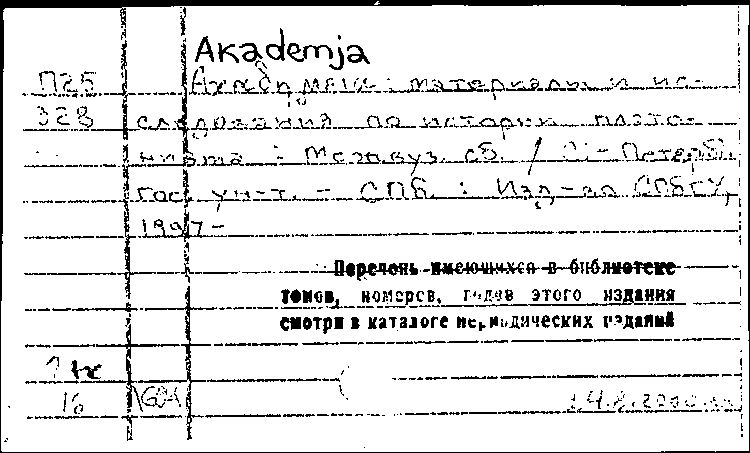 Akademja
П25 Ακαδημεια: материалы и ис-
328 следования по истории плато-
низма : Межвуз. сб. / С.-Петерб.
гос. ун-т. - СПб. : Изд-во СПбГУ,
1997-
Перечень имеющихся в библиотеке
томов, номеров, годов этого издания
смотри в каталоге периодических изданий
16